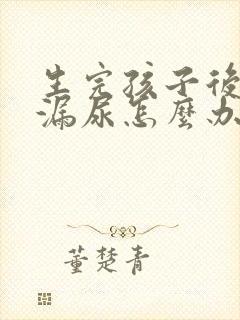 生完孩子後
漏尿怎麼办
董楚青